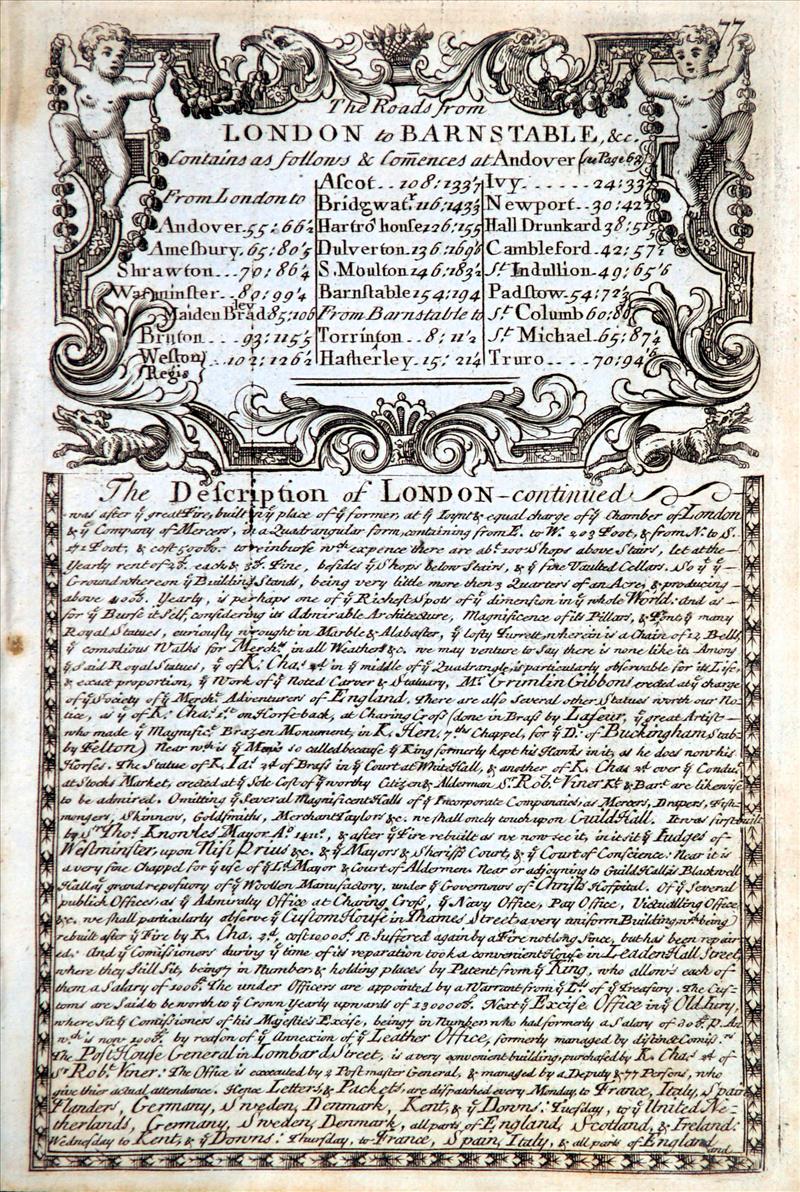 77
The Roads from
LONDON to BARNSTABLE, &c.
Contains as follows & Com̄ences at Andover (see Page 62)
From London to
Andover 55: 66½
Amesbury. 65: 80'5
Shrawton.. 70: 86¼
Warminster.. 80: 99'4
Maiden Bradley 85: 106
Bruton .... 93: 115'5
Weston Regis } 102: 126½
Ascot.. 108: 133'7
Bridgwatr. 116: 143
Hartro' house 126: 155
Dulverton. 136: 169
S. Moulton 146: 183
Barnstable 154: 194
From Barnstable to
Torrinton .. 8: 11'2
Hatherley. 15: 21¼
Ivy....... 24: 33
Newport.. 30: 42
Hall Drunkard 38: 51
Cambleford. 42: 57½
St. Indullion. 49: 65'6
Padstow. 54: 72'3
St. Columb 60: 80
St. Michael. 65: 87¼
Truro .... 70: 94'6
The Description of LONDON - continued
was after ye great Fire, built in ye place of ye former, at ye Joynt & equal charge of ye Chamber of London
& ye Company of Mercers, in a Quadrangular form, containing from E. to W. 203 Foot, & from N. to S.
171 Foot; & cost 50000. to reinburse wch expence there are abt. 200 Shops above Stairs, let at the
Yearly rent of 20l. each & 30l. Fine, besides ye Shops below Stairs, & ye fine Vaulted Cellars. So yt ye
Ground whereon ye Building Stands, being very little more then 3 Quarters of an Acre, & producing
above 4000. Yearly, is perhaps one of ye Richest Spots of ye dimension in ye whole World: and as
for ye Burse it Self, considering its Admirable Architecture, Magnificence of its Pillars, & Fonts, ye many
Royal Statues, curiously wrought in Marble & Alabaster, ye lofty Turrett, wherein is a Chain of 12 Bells
ye comodious Walks for Mercht. in all Weathers &c. we may venture to Say there is none like it. Among
ye Said Royal Statues, ye of K. Cha: 2d. in ye middle of ye Quadrangle, is particularly observable for its Life,
& exact proportion, ye Work of ye Noted Carver & Statuary, Mr. Grimlin Gibbons erected at ye charge
of ye Society of ye Mercht. Adventurers of England. There are also Several other Statues worth our No-
tice, as ye of K. Cha: 1st. on Horseback, at Charing Cross (done in Brass by Laseur, ye great Artist
who made ye Magnifict. Brazen Monument, in K. Hen: 7ths. Chappel, for ye D. of Buckingham, Stab-
by Felton) Near wch is ye Mews so called because ye King formerly kept his Hawks in it, as he does now his
Horses. The Statue of K. Ja: 2d. of Brass in ye Court at White Hall, & another of K. Cha: 2d. over ye Conduit
at Stocks Market, erected at ye Sole Cost of ye worthy Citizen & Alderman Sr. Robt. Viner Kt. & Bart. are likewise
to be admired. Omitting ye Several Magnificent Halls of ye Incorporate Companies, as Mercers, Drapers, Fish-
mongers, Skinners, Goldsmiths, Merchant Taylors &c. we shall onely touch upon Guild Hall. It was first built
by Sr. Tho: Knowles Mayor Ao. 1411, & after ye Fire rebuilt as we now see it, in it Sit ye Judges of
Westminster, upon Nisi Prius &c. & ye Mayors & Sheriffs Court, & ye Court of Conscience: Near it is
a very fine Chappel for ye use of ye Ld. Mayor & Court of Aldermen. Near or adjoyning to Guild Hall, is Blackwell
Hall, ye grand repository of ye Woollen Manufactory, under ye Governours of Christs Hospital. Of ye Several
publick Offices, as ye Admiralty Office at Charing Cross, ye Navy Office, Pay Office, Victualling Office,
&c. we shall particularly observe ye Custom House in Thames Street, a very uniform Building, wch being
rebuilt after ye Fire by K. Cha: 2d. cost 10000. It Suffered again by a Fire not long Since, but has been repair-
ed: And ye Com̄issioners during ye time of its reparation took a convenient House in Leaden Hall Street,
where they Still Sit, being 7 in Number, & holding places by Patent from ye King, who allow's each of
them a Salary of 1000. The under Officers are appointed by a Warrant from ye Lds. of ye Treasury. The Cus-
toms are Said to be worth to ye Crown Yearly upwards of 1300000. Next ye Excise Office in ye Old Jury,
where Sit ye Com̄issioners of his Majestie's Excise, being 7 in Number who had formerly a Salary of 800. P. An.
wch. is now 1000. by reason of ye Annexion of ye Leather Office, formerly managed by distinct Comiss.rs
The Post House General in Lombard Street, is a very convenient building, purchased by K. Cha: 2d. of
Sr. Rob: Viner: The Office is executed by 2 Post master General, & managed by a Deputy & 77 Persons, who
give thier actual attendance. Hence Letters & Packets, are dispatched every Monday, to France, Italy, Spain
Flanders, Germany, Sweden, Denmark, Kent, & ye Downs: Tuesday, to ye United Ne-
therlands, Germany, Sweden, Denmark, all parts of England, Scotland, & Ireland:
Wednesday to Kent, & ye Downs: Thursday, to France, Spain, Italy, & all parts of England
and